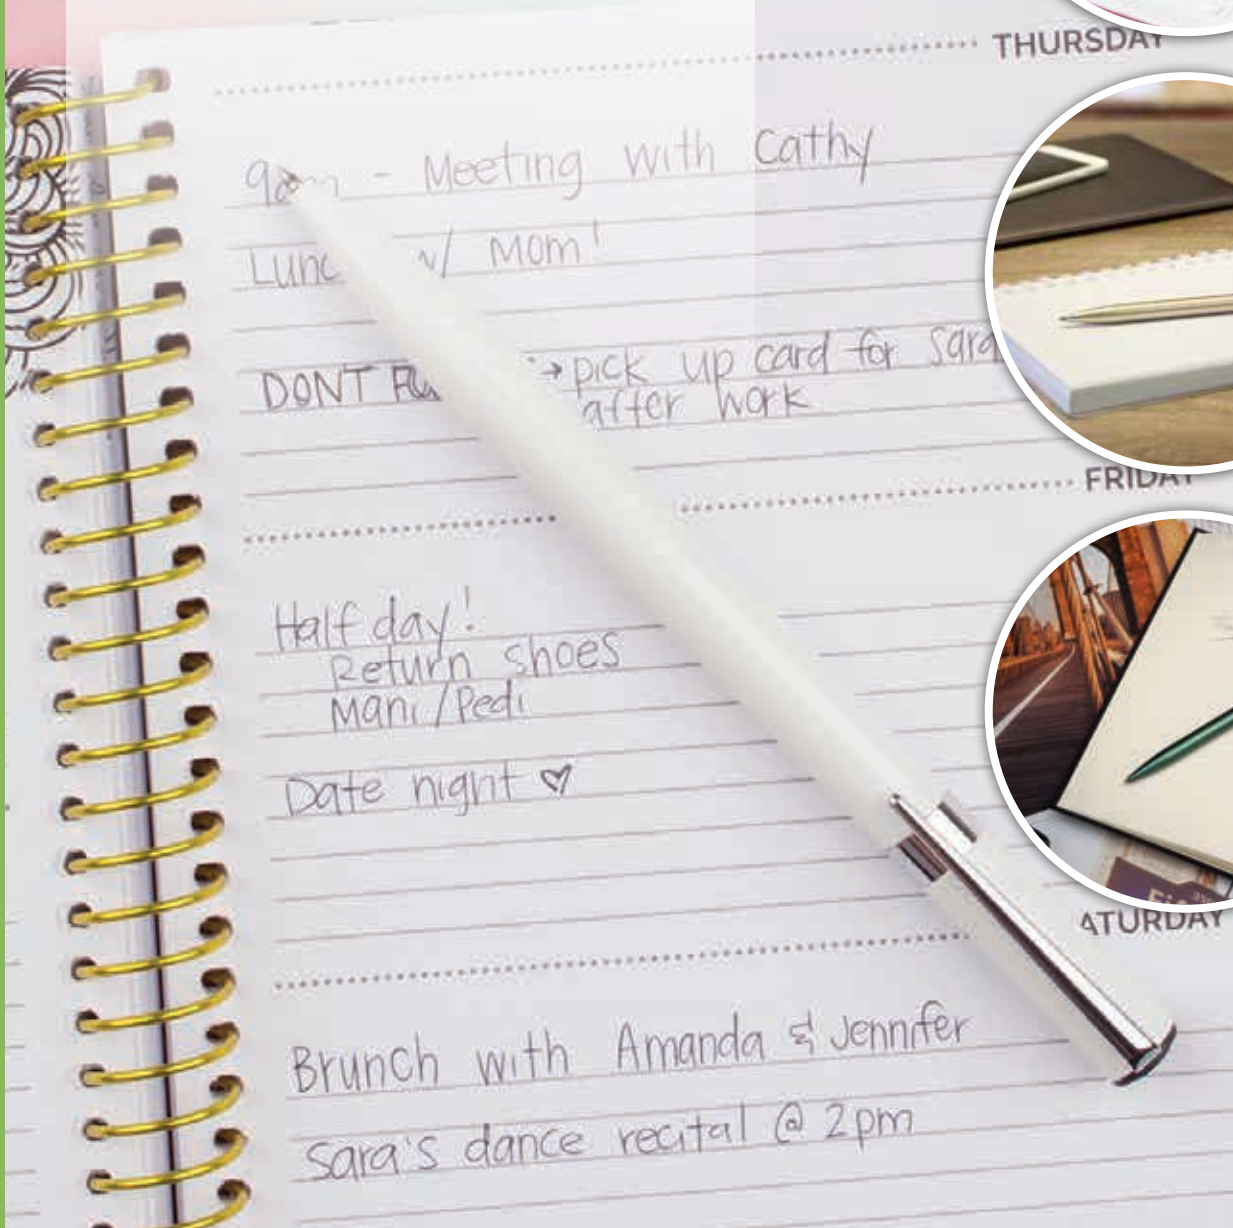 THURSDAY
9am - Meeting with Cathy
Lunc w/ Mom!
DONT → pick up card for Sara
after work
FRIDAY
Half day!
Return shoes
Mani/Pedi
Date night ♡
ATURDAY
Brunch with Amanda & Jennifer
Sara's dance recital @ 2pm